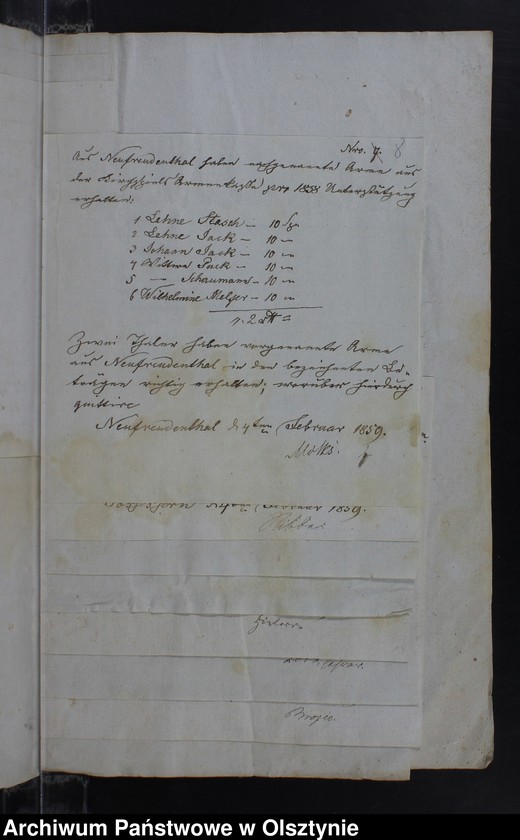 Nro. 7. 8
Aus Neufreudenthal haben nachgenannte Arme aus
der Kirchspiels Armenkasse pro 1858 Unterstützung
erhalten:
1 Lehne Stasch – 10 Sg
2 Lehne Jack – 10 "
3 Johann Jack – 10 "
4 Wittwe Puck – 10 "
5 — Schaumann – 10 "
6 Wilhelmine Melzer – 10 "
2
Zwei Thaler haben vorgenannte Arme
aus Neufreudenthal in den bezeichneten Be-
trägen richtig erhalten; worüber hierdurch
quittire
Neufreudenthal d 4ten Februar 1859.
Februar 1859.
Archiwum Państwowe w Olsztynie